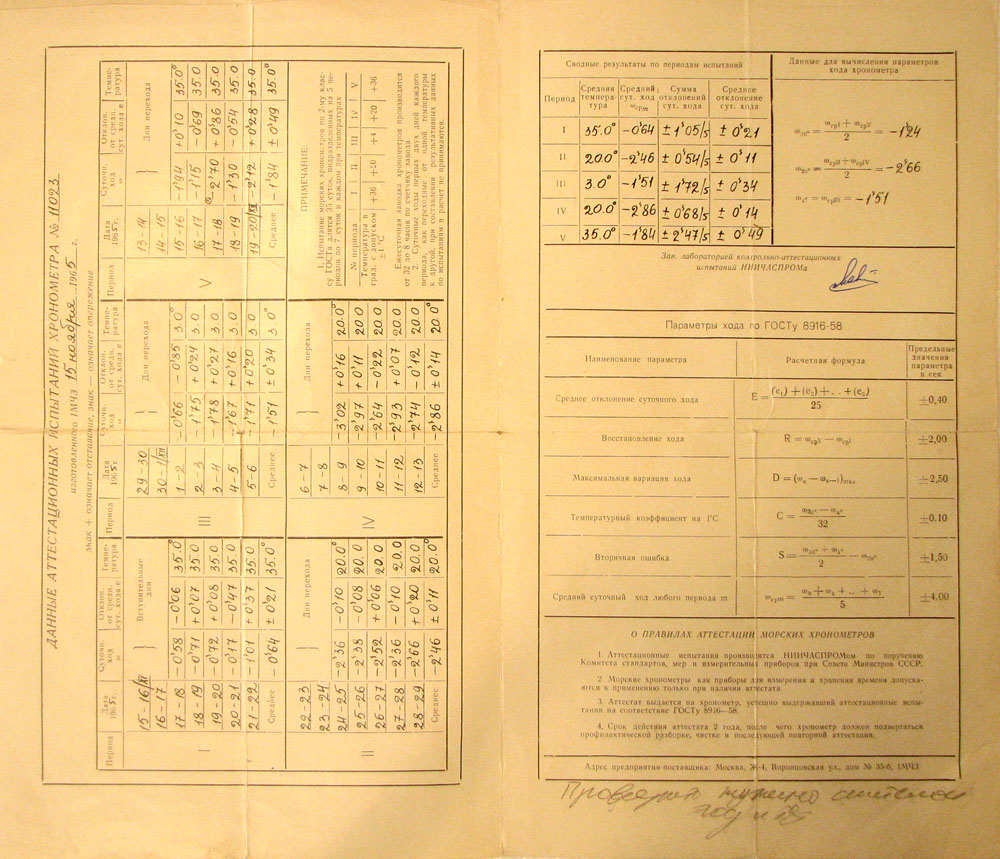 ДАННЫЕ АТТЕСТАЦИОННЫХ ИСПЫТАНИЙ ХРОНОМЕТРА № 11023
изготовленного 1МЧЗ 15 ноября 1965 г.
знак + означает отставание, знак — означает опережение
Период Дата 1965 г. Суточн. ход ω Отклон. от средн. сут. хода e Темпе-ратура
I
15-16/XI Вступительные
16-17 дни
17-18 -0ˢ58 -0ˢ06 35.0°
18-19 -0ˢ71 +0ˢ07 35.0
19-20 -0ˢ72 +0ˢ08 35.0
20-21 -0ˢ17 -0ˢ47 35.0
21-22 -1ˢ01 +0ˢ37 35.0
Среднее -0ˢ64 ±0ˢ21 35.0°
II
22-23 Дни перехода
23-24
24-25 -2ˢ36 -0ˢ10 20.0°
25-26 -2ˢ38 -0ˢ08 20.0
26-27 -2ˢ52 +0ˢ06 20.0
27-28 -2ˢ36 -0ˢ10 20.0
28-29 -2ˢ66 +0ˢ20 20.0
Среднее -2ˢ46 ±0ˢ11 20.0°
Период Дата 1965 г. Суточн. ход ω Отклон. от средн. сут. хода e Темпе-ратура
III
29-30 Дни перехода
30-1/XII
1-2 -0ˢ66 -0ˢ85 3.0°
2-3 -1ˢ75 +0ˢ24 3.0
3-4 -1ˢ78 +0ˢ27 3.0
4-5 -1ˢ67 +0ˢ16 3.0
5-6 -1ˢ71 +0ˢ20 3.0
Среднее -1ˢ51 ±0ˢ34 3.0°
IV
6-7 Дни перехода
7-8
8-9 -3ˢ02 +0ˢ16 20.0°
9-10 -2ˢ97 +0ˢ11 20.0
10-11 -2ˢ64 -0ˢ22 20.0
11-12 -2ˢ93 +0ˢ07 20.0
12-13 -2ˢ74 -0ˢ12 20.0
Среднее -2ˢ86 ±0ˢ14 20.0°
Период Дата 1965 г. Суточн. ход ω Отклон. от средн. сут. хода e Темпе-ратура
V
13-14 Дни перехода
14-15
15-16 -1ˢ94 +0ˢ10 35.0°
16-17 -1ˢ15 -0ˢ69 35.0
17-18 -2ˢ70 +0ˢ86 35.0
18-19 -1ˢ30 -0ˢ54 35.0
19-20/XII -2ˢ12 +0ˢ28 35.0
Среднее -1ˢ84 ±0ˢ49 35.0°
ПРИМЕЧАНИЕ
1. Испытание морских хронометров по 2-му клас-
су ГОСТа длится 35 суток, подразделенных из 5 пе-
риодов по 7 суток в каждом при температурах
№ периода I II III IV V
Температура в град. с допуском ±1 °C +36 +20 +4 +20 +36
Ежесуточная заводка хронометров производится
от 32 до 8 часов по счетчику завода.
2. Суточные ходы первых двух дней каждого
периода, как переходные от одной температуры
к другой, при составлении результативных данных
по испытаниям в расчет не принимаются.
Сводные результаты по периодам испытаний
Период Средняя темпера-тура Средний сут. ход ωсрm Сумма отклонений сут. хода Среднее отклонение сут. хода
I 35.0° -0ˢ64 ±1ˢ05/5 ±0ˢ21
II 20.0° -2ˢ46 ±0ˢ54/5 ±0ˢ11
III 3.0° -1ˢ51 ±1ˢ72/5 ±0ˢ34
IV 20.0° -2ˢ86 ±0ˢ68/5 ±0ˢ14
V 35.0° -1ˢ84 ±2ˢ47/5 ±0ˢ49
Данные для вычисления параметров
хода хронометра
ω36° = (ωсрI + ωсрV) / 2 = -1ˢ24
ω20° = (ωсрII + ωсрIV) / 2 = -2ˢ66
ω4° = ωсрIII = -1ˢ51
Зав. лабораторией контрольно-аттестационных
испытаний НИИЧАСПРОМа
Параметры хода по ГОСТу 8916-58
Наименование параметра Расчетная формула Предельные значения параметра в сек.
Среднее отклонение суточного хода E = ((e₁) + (e₂) + . . + (e₅)) / 25 ±0,40
Восстановление хода R = ωсрV — ωсрI ±2,00
Максимальная вариация хода D = (ωn — ωn—1)max ±2,50
Температурный коэффициент на 1°С C = (ω36° — ω4°) / 32 ±0.10
Вторичная ошибка S = (ω36° + ω4°) / 2 — ω20° ±1,50
Средний суточный ход любого периода m ωсрm = (ω3 + ω4 + ... + ω7) / 5 ±4.00
О ПРАВИЛАХ АТТЕСТАЦИИ МОРСКИХ ХРОНОМЕТРОВ
1. Аттестационные испытания производятся НИИЧАСПРОМом по поручению
Комитета стандартов, мер и измерительных приборов при Совете Министров СССР.
2. Морские хронометры как приборы для измерения и хранения времени допуска-
ются к применению только при наличии аттестата.
3. Аттестат выдается на хронометр, успешно выдержавший аттестационные испы-
тания на соответствие ГОСТу 8916—58.
4. Срок действия аттестата 2 года, после чего хронометр должен подвергаться
профилактической разборке, чистке и последующей повторной аттестации.
Адрес предприятия-поставщика: Москва, Ж-4, Воронцовская ул., дом № 35-б, 1МЧЗ